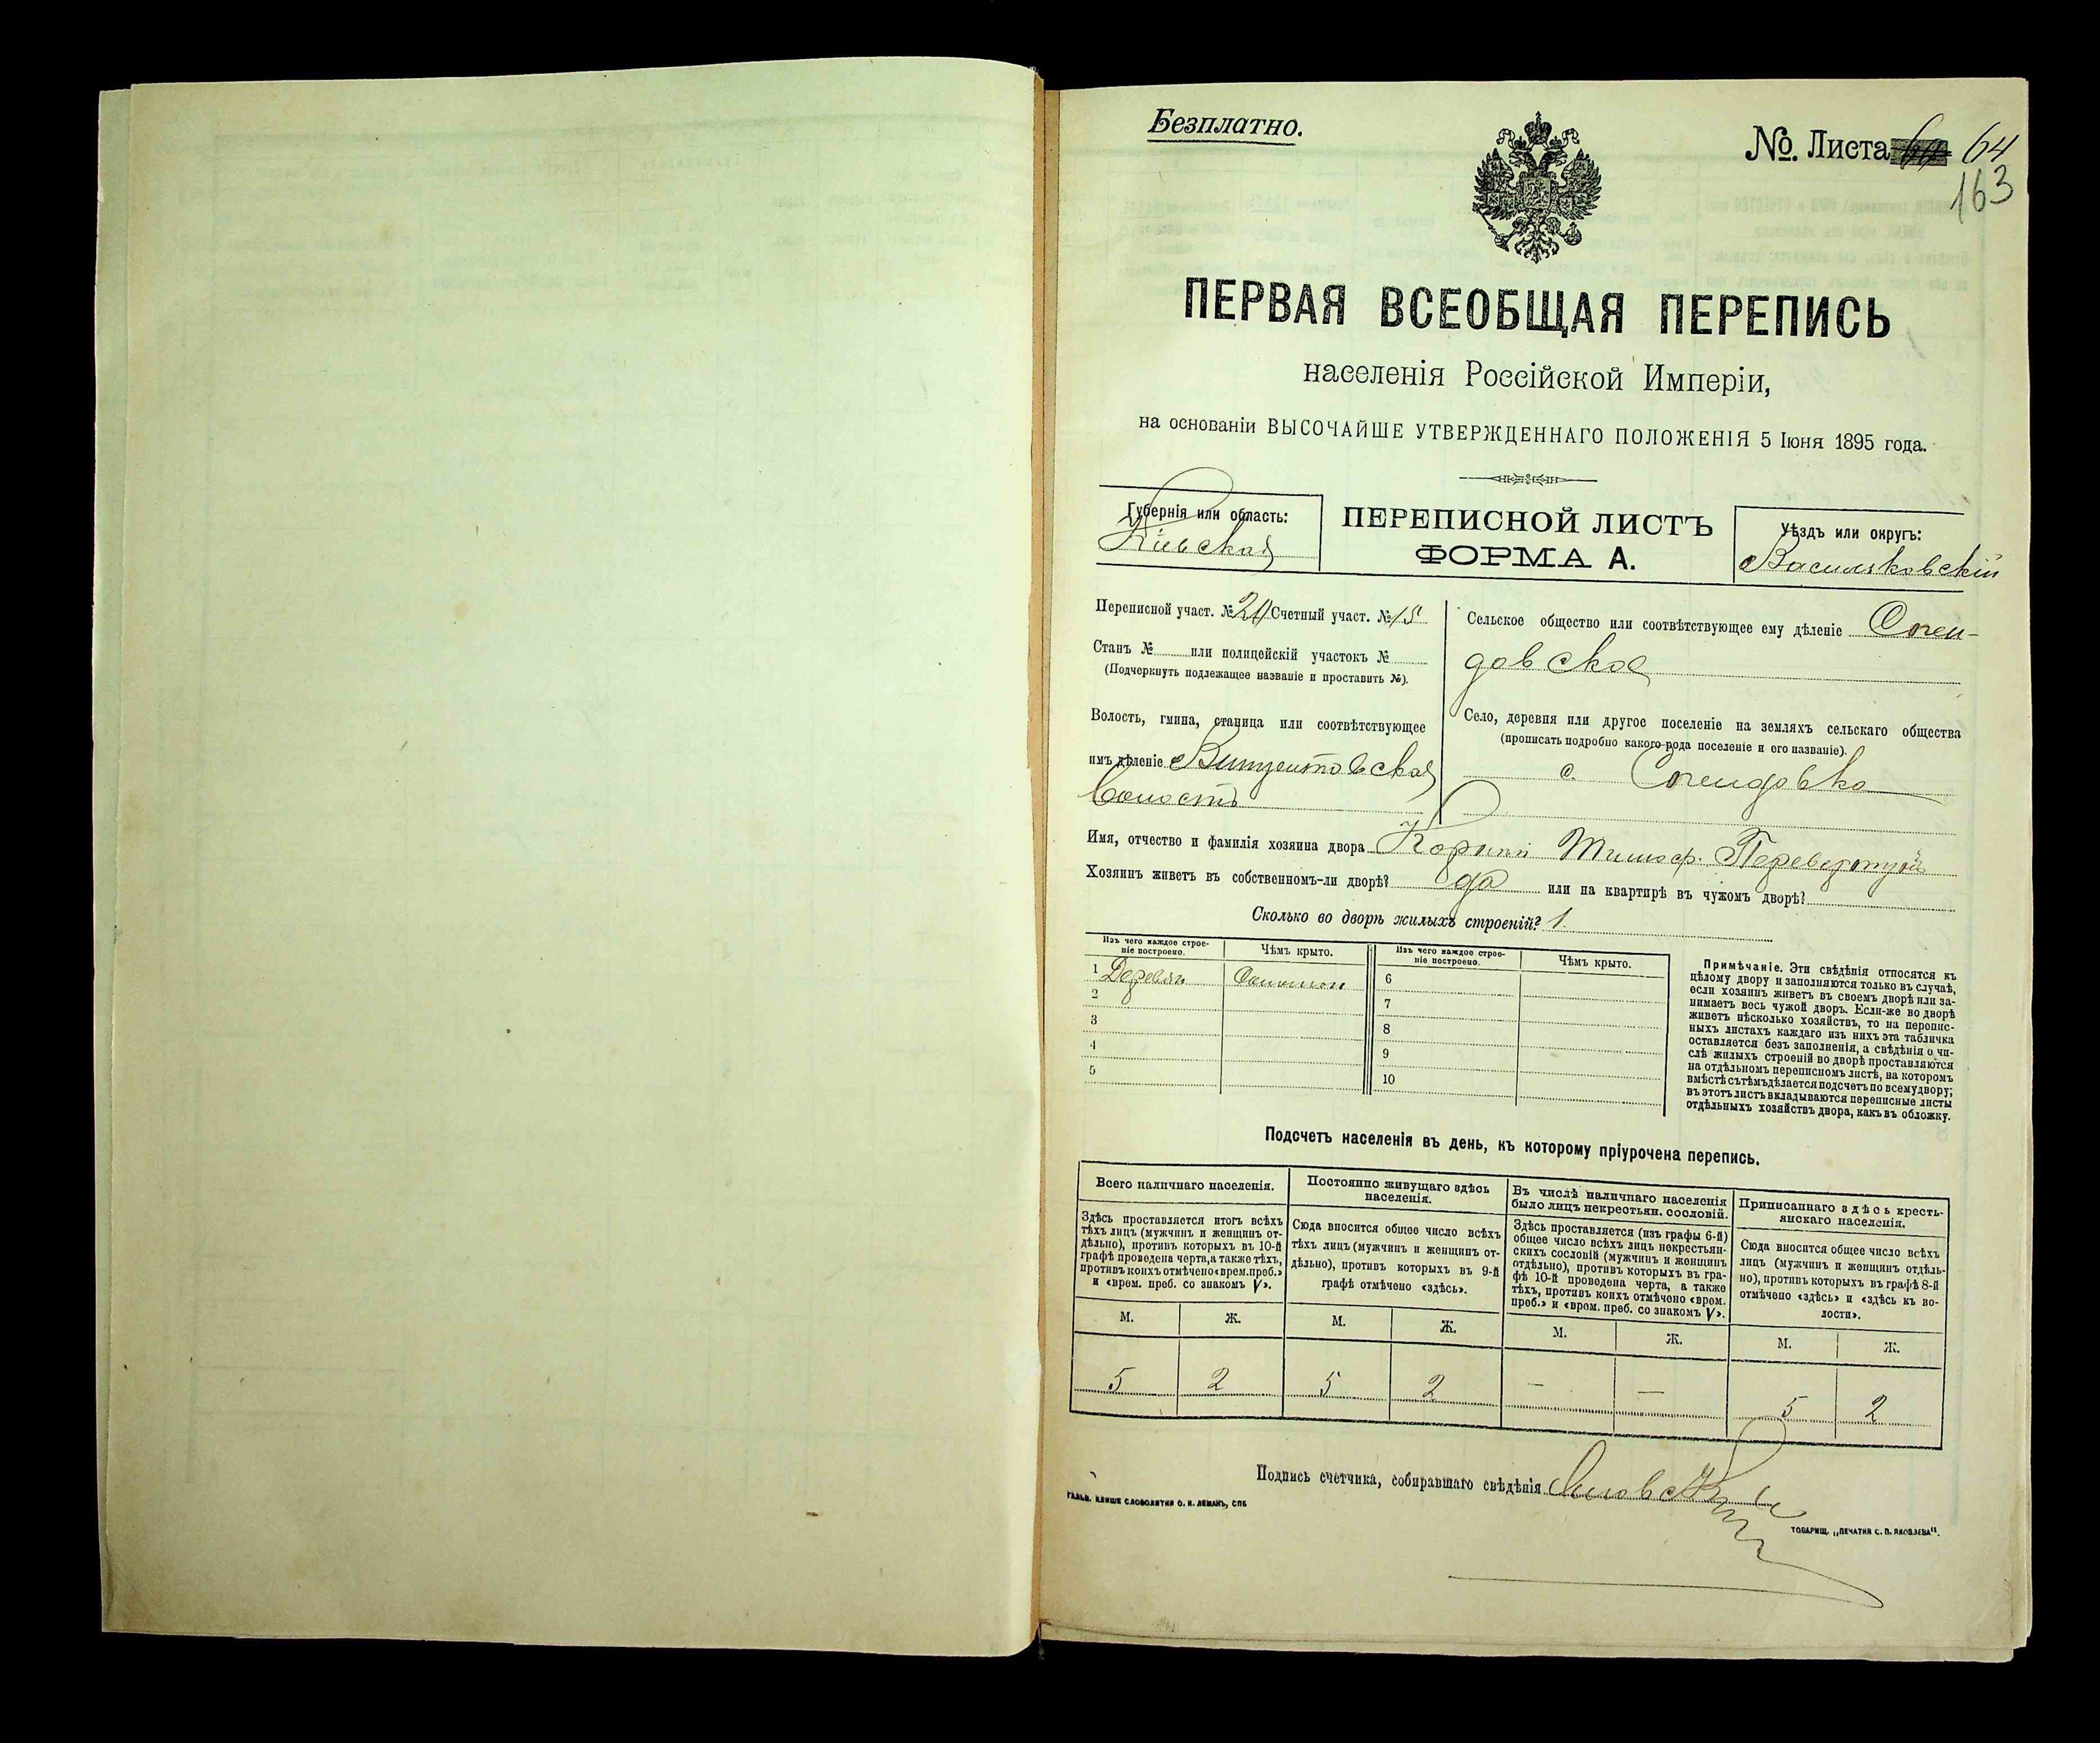 Безплатно.
№. Листа 64
163
ПЕРВАЯ ВСЕОБЩАЯ ПЕРЕПИСЬ
населенія Россійской Имперіи,
на основаніи ВЫСОЧАЙШЕ УТВЕРЖДЕННАГО ПОЛОЖЕНІЯ 5 Іюня 1895 года.
Губернія или область:
Кіевская
ПЕРЕПИСНОЙ ЛИСТЪ
ФОРМА А.
Уѣздъ или округъ:
Васильковскій
Переписной участ. № Счетный участ. №15
Станъ № или полицейскій участокъ №
(Подчеркнуть подлежащее названіе и проставить №).
Волость, гмина, станица или соотвѣтствующее
имъ дѣленіе Винцентовская
Волость
Сельское общество или соотвѣтствующее ему дѣленіе
довское
Село, деревня или другое поселеніе на земляхъ сельскаго общества
(прописать подробно какого-рода поселеніе и его названіе).
с.
Имя, отчество и фамилія хозяина двора
Хозяинъ живетъ въ собственномъ-ли дворѣ? да или на квартирѣ въ чужомъ дворѣ?
Сколько во дворѣ жилыхъ строеній? 1.
Изъ чего каждое строе-
ніе построено.
Чѣмъ крыто.
Изъ чего каждое строе-
ніе построено.
Чѣмъ крыто.
1 Деревян 6
2 7
3 8
4 9
5 10
Примѣчаніе. Эти свѣдѣнія относятся къ
цѣлому двору и заполняются только въ случаѣ,
если хозяинъ живетъ въ своемъ дворѣ или за-
нимаетъ весь чужой дворъ. Если-же во дворѣ
живетъ нѣсколько хозяйствъ, то на перепис-
ныхъ листахъ каждаго изъ нихъ эта табличка
оставляется безъ заполненія, а свѣдѣнія о чи-
слѣ жилыхъ строеній во дворѣ проставляются
на отдѣльномъ переписномъ листѣ, на которомъ
вмѣстѣ съ тѣмъ дѣлается подсчетъ по всему двору;
въ этотъ листъ вкладываются переписные листы
отдѣльныхъ хозяйствъ двора, какъ въ обложку.
Подсчетъ населенія въ день, къ которому пріурочена перепись.
Всего наличнаго населенія.
Здѣсь проставляется итогъ всѣхъ
тѣхъ лицъ (мужчинъ и женщинъ от-
дѣльно), противъ которыхъ въ 10-й
графѣ проведена черта, а также тѣхъ,
противъ коихъ отмѣчено «врем. преб.»
и «врем. преб. со знакомъ V».
Постоянно живущаго здѣсь
населенія.
Сюда вносится общее число всѣхъ
тѣхъ лицъ (мужчинъ и женщинъ от-
дѣльно), противъ которыхъ въ 9-й
графѣ отмѣчено «здѣсь».
Въ числѣ наличнаго населенія
было лицъ некрестьян. сословій.
Здѣсь проставляется (изъ графы 6-й)
общее число всѣхъ лицъ некрестьян-
скихъ сословій (мужчинъ и женщинъ
отдѣльно), противъ которыхъ въ гра-
фѣ 10-й проведена черта, а также
тѣхъ, противъ коихъ отмѣчено «врем.
преб.» и «врем. преб. со знакомъ V».
Приписаннаго здѣсь кресть-
янскаго населенія.
Сюда вносится общее число всѣхъ
лицъ (мужчинъ и женщинъ отдѣль-
но), противъ которыхъ въ графѣ 8-й
отмѣчено «здѣсь» и «здѣсь къ во-
лости».
М. Ж. М. Ж. М. Ж. М. Ж.
5 2 5 2 — — 5 2
Подпись счетчика, собиравшаго свѣдѣнія
ГАЛЬВ. КЛИШЕ СЛОВОЛИТНИ О. И. ЛЕМАНЪ, СПБ
ТОВАРИЩ. „ПЕЧАТНЯ С. П. ЯКОВЛЕВА".